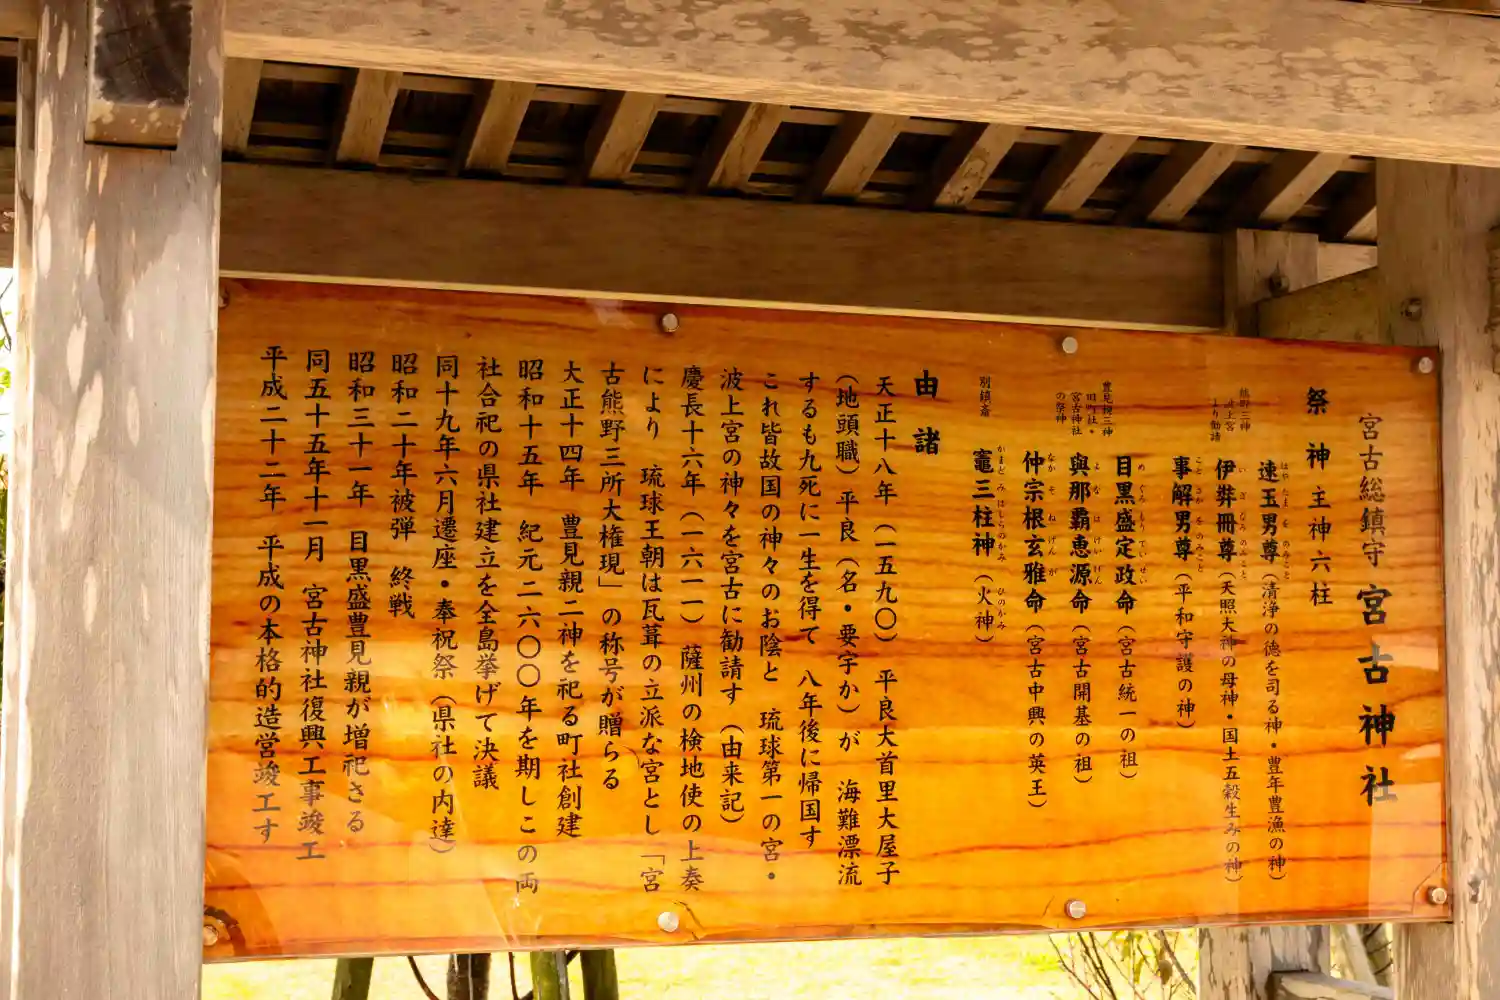 宮古総鎮守 宮古神社
祭神 主神六柱
熊野三神
波上宮
より勧請
速玉男尊（清浄の徳を司る神・豊年豊漁の神）
伊弉冊尊（天照大神の母神・国土五穀生みの神）
事解男尊（平和守護の神）
豊見親三神
旧町社・
宮古神社
の祭神
目黒盛定政命（宮古統一の祖）
與那覇恵源命（宮古開基の祖）
仲宗根玄雅命（宮古中興の英王）
別鎮斎
竈三柱神（火神）
由諸
天正十八年（一五九〇） 平良大首里大屋子
（地頭職）平良（名・要宇か）が 海難漂流
するも九死に一生を得て 八年後に帰国す
これ皆故国の神々のお陰と 琉球第一の宮・
波上宮の神々を宮古に勧請す（由来記）
慶長十六年（一六一一） 薩州の検地使の上奏
により 琉球王朝は瓦葺の立派な宮とし「宮
古熊野三所大権現」の称号が贈らる
大正十四年 豊見親二神を祀る町社創建
昭和十五年 紀元二六〇〇年を期しこの両
社合祀の県社建立を全島挙げて決議
同十九年六月遷座・奉祝祭（県社の内達）
昭和二十年被弾 終戦
昭和三十一年 目黒盛豊見親が増祀さる
同五十五年十一月 宮古神社復興工事竣工
平成二十二年 平成の本格的造営竣工す